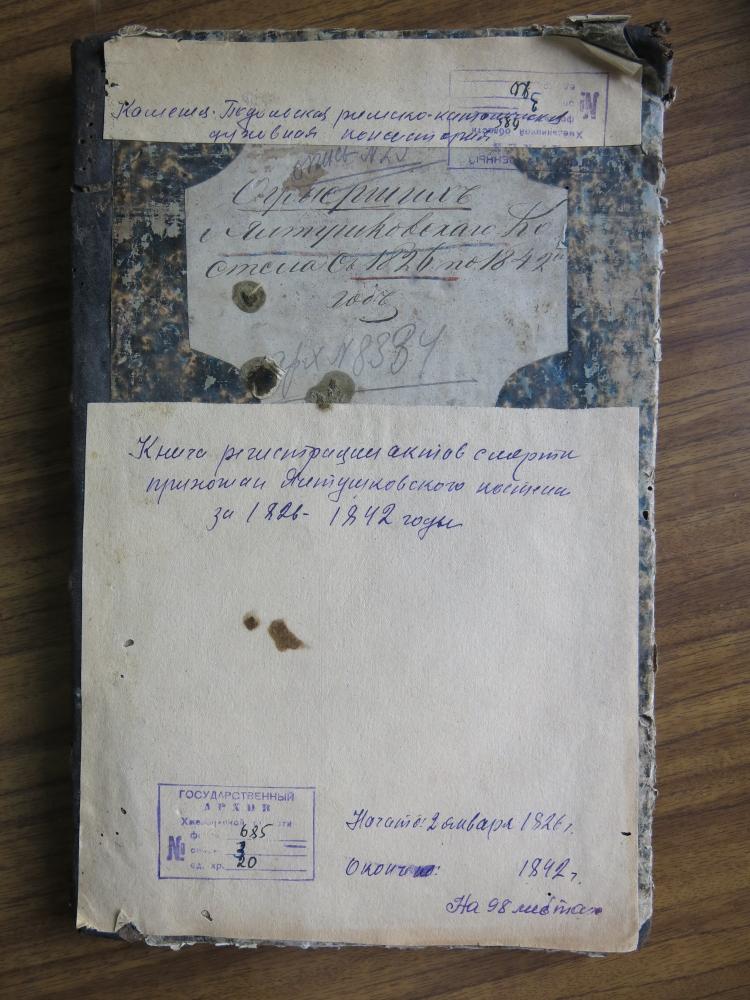 Каменец-Подольская римско-католическая
духовная консистория
№ 685
3
20
Хмельницкой области
опись № 23
о умершихъ
Ялтушковскаго Ко
стела съ 1826 по 1842й
годъ
арх № 8384
Книга регистрации актов смерти
прихожан Ялтушковского костела
за 1826- 1842 годы
ГОСУДАРСТВЕННЫЙ
АРХИВ
Хмельницкой области
фонд 685
№ опись 3
ед. хр. 20
Начато: 2 января 1826 г.
Окончено: 1842 г.
На 98 листах